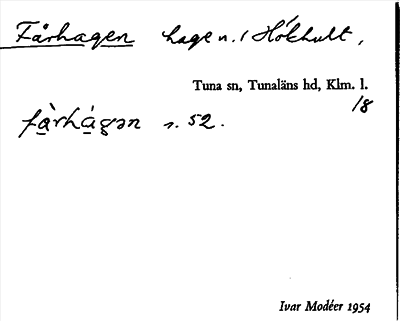 Fårhagen hage n. / Hökhult,
Tuna sn, Tunaläns hd, Klm. l.
1/8
fàrhágən s. 52.
Ivar Modéer 1954